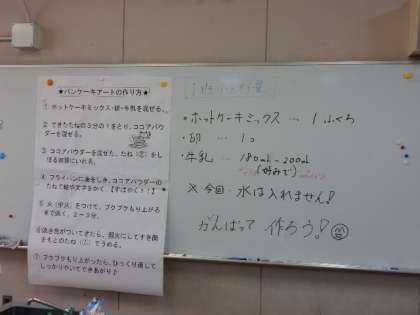 ★パンケーキアートの作り方★
① ホットケーキミックス・卵・牛乳を混ぜる。
② できたたねの3分の1をとり、ココアパウ
ダーを混ぜる。
③ ココアパウダーを混ぜた、たね（②）をし
ぼる袋にいれる。
④ フライパンに油をしき、ココアパウダーの
たねで絵や文字をかく【すばやく！！】
⑤ 火（中火）をつけて、プクプクもり上がる
まで焼く、2～3分。
⑥ 焼き色がついてきたら、弱火にしてすき間
をもとのたね（①）でうめる。
⑦ プクプクもり上がったら、ひっくり返して
しっかりやいてできあがり♪
・ホットケーキミックス … 1ふくろ
・卵 … 1コ
・牛乳 … 180ml~200ml
(好みで)
※ 今回、水は入れません！
がんばって 作ろう！